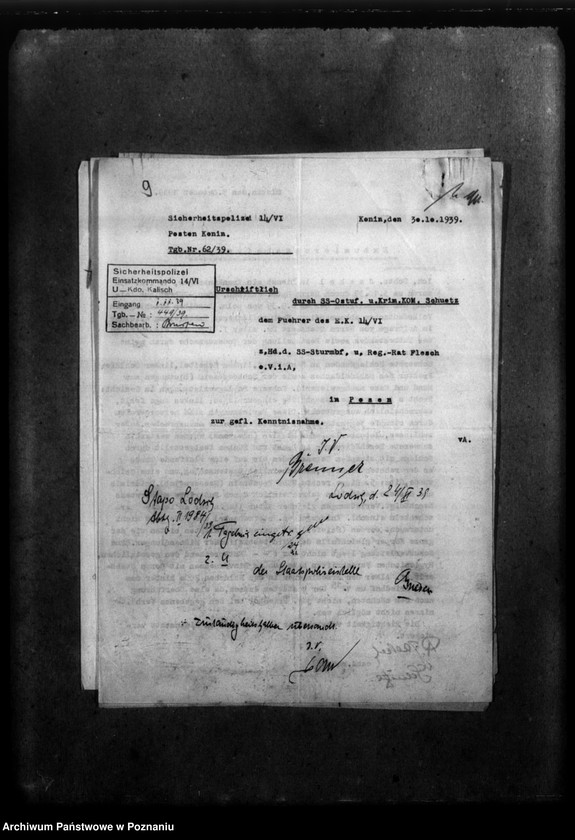 9
Sicherheitspolizei 14/VI
Konin,den 3o.1o.1939.
Posten Konin.
Tgb.Nr.62/39.
Sicherheitspolizei
Einsatzkommando 14/VI
U – Kdo. Kalisch
Eingang
Tgb. – №: 449/39.
Sachbearb.:
Urschriftlich
durch SS-Ostuf. u.Krim.KOM. Schuetz
dem Fuehrer des E.K. 14/VI
z.Hd.d. SS-Sturmbf. u. Reg.-Rat Flesch
o.V.i.A.
in Posen
zur gefl. Kenntnisnahme.
vA.
I.V.
Stapo Lodsch
Lodsch, d. 24/XI 39
Abtg. II 1984/39
1. Tagebuch eingetragen
2. U
der Staatspolizeistelle
Posen
zuständigkeitshalber übersandt.
I.V.
Archiwum Państwowe w Poznaniu